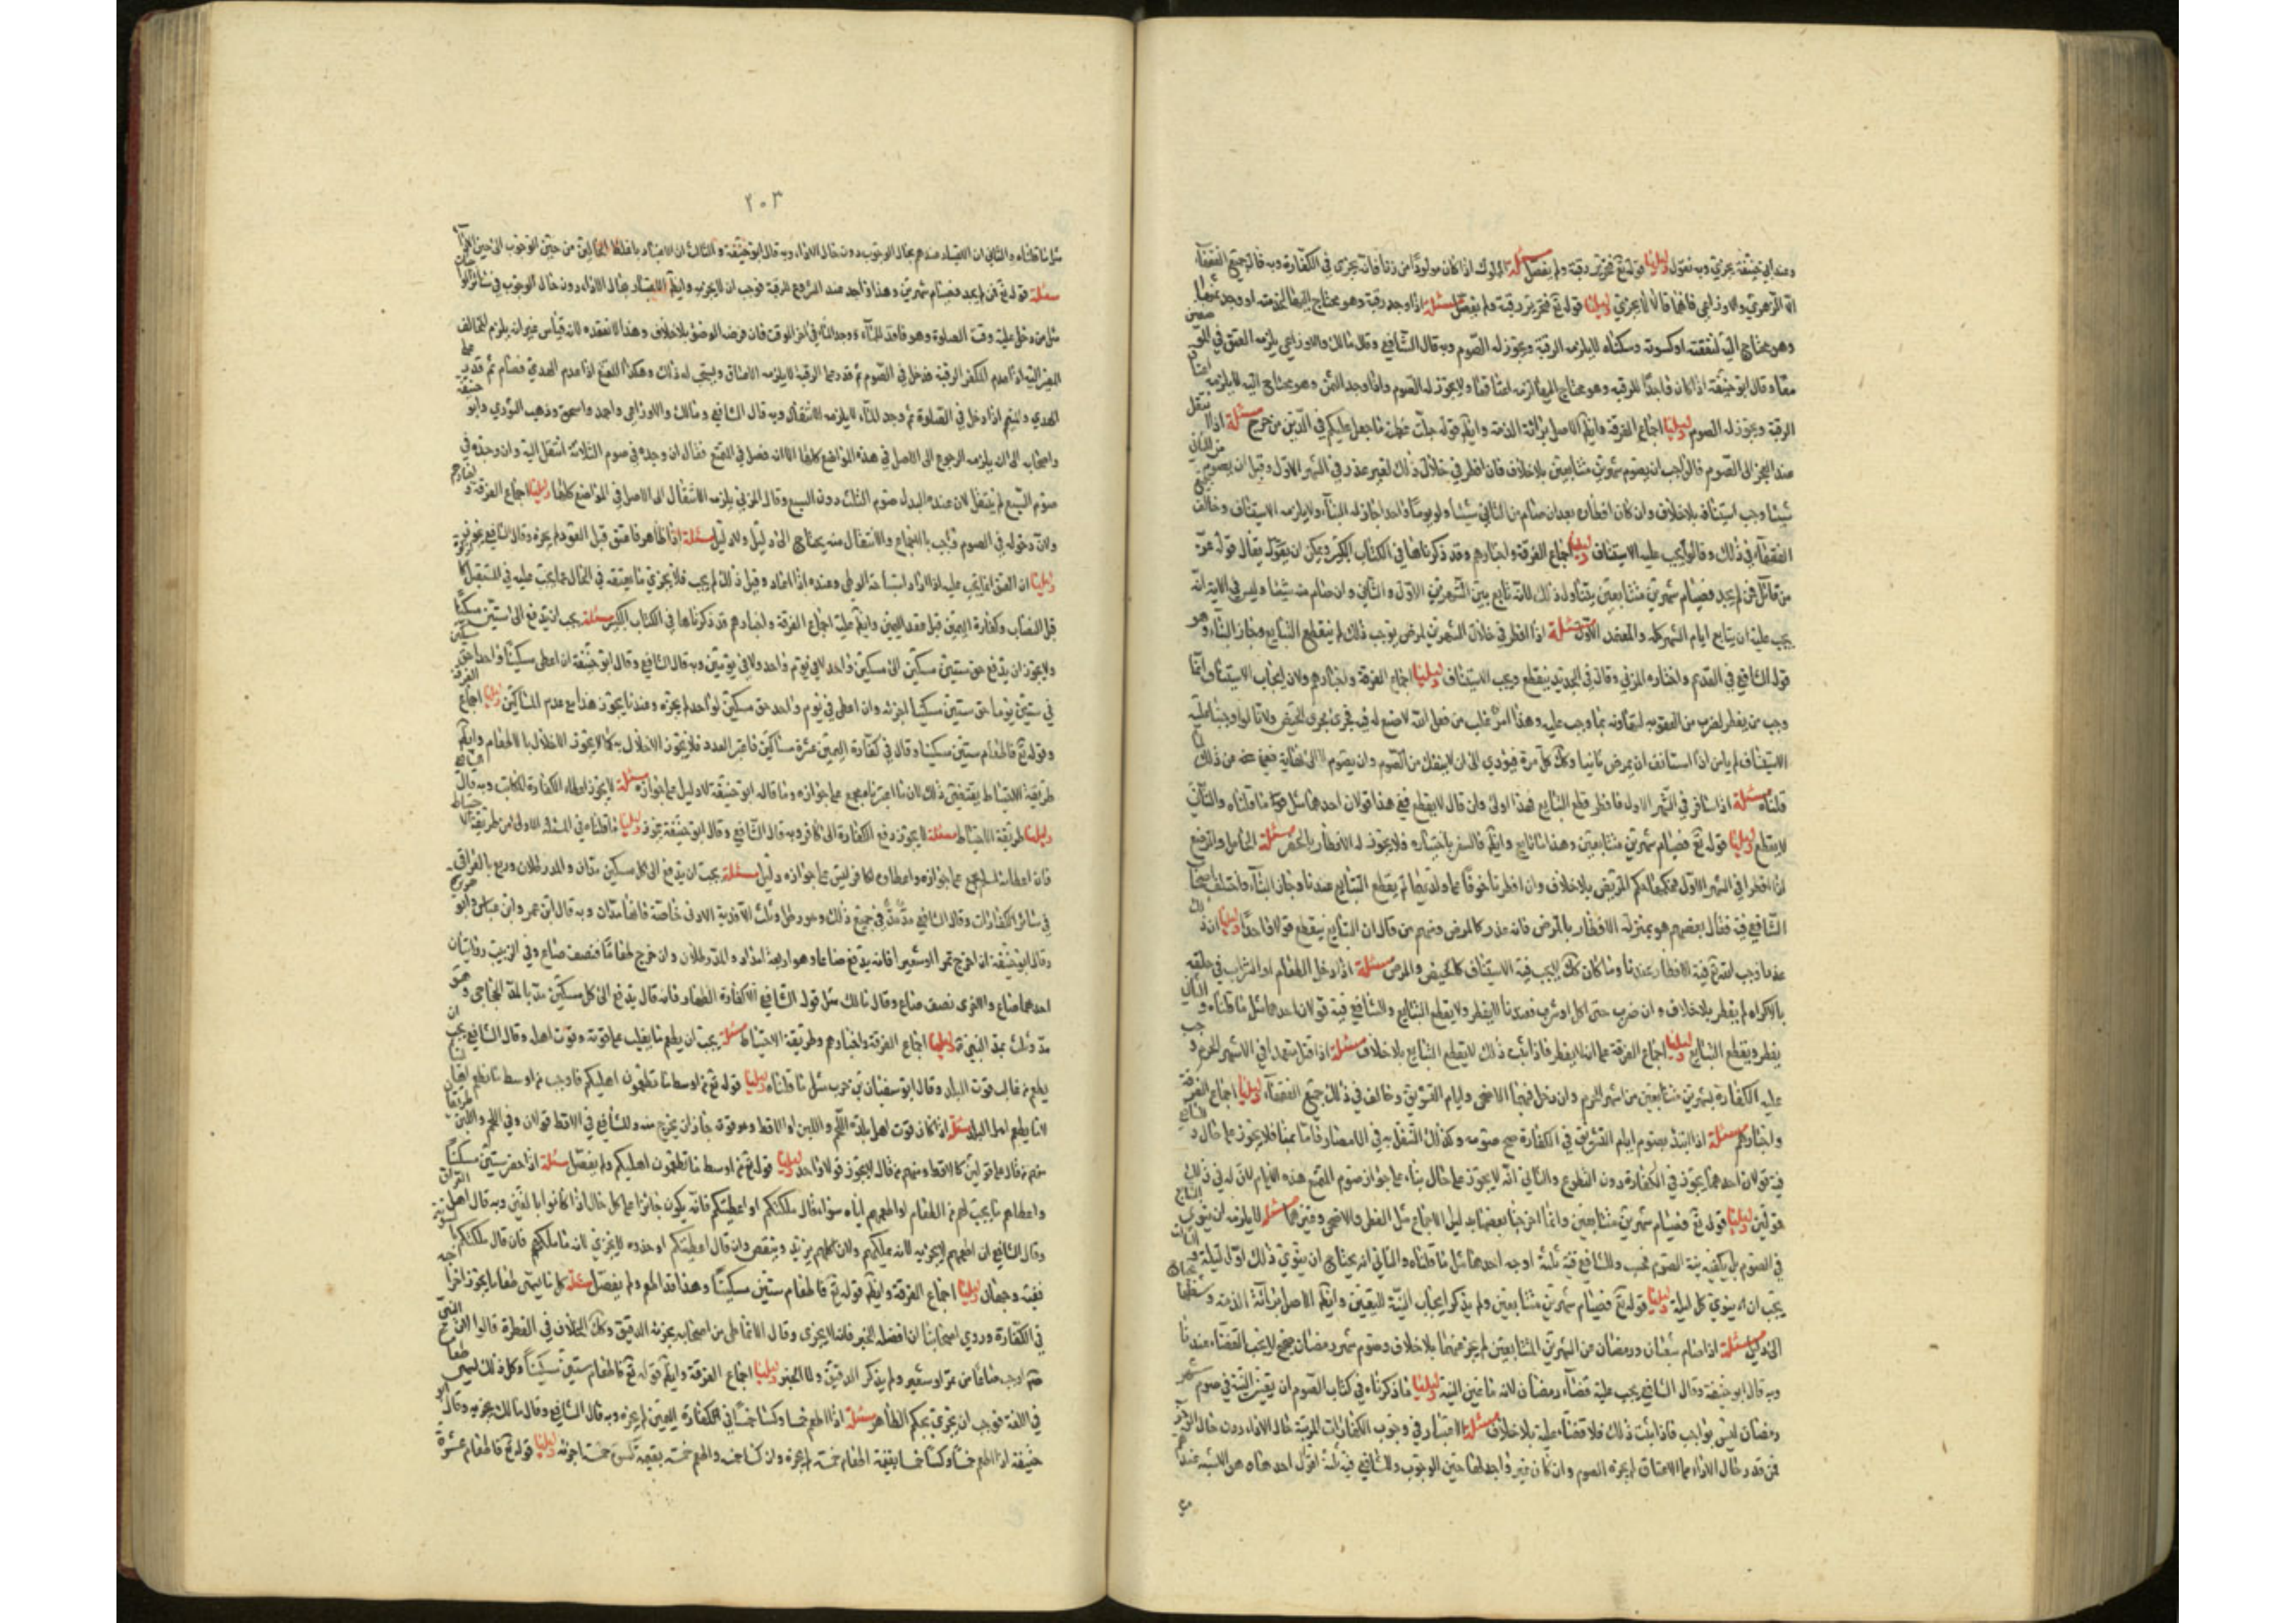 وعند ابي حنيفة يجزي وبه نقول دليلنا قوله تع فتحرير رقبة ولم يفصل مسئلة المملوك اذا كان مولودا من زنا فانه يجزي في الكفارة وبه قال جميع الفقهاء
الا الزهري والاوزاعي فانهما قالا لا يجزي دليلنا قوله تع فتحرير رقبة ولم يفصل مسئلة اذا وجد رقبة وهو محتاج اليها لخدمته او وجد ثمنها
وهو محتاج اليه لنفقته او كسوته وسكناه لا يلزمه الرقبة ويجوز له الصوم وبه قال الشافعي وقال مالك والاوزاعي يلزمه العتق في الموضعين
معا وقال ابو حنيفة اذا كان واجدا للرقبة وهو محتاج اليها لزمه اعتاقها ولا يجوز له الصوم واذا وجد الثمن وهو محتاج اليه لا يلزمه اعتاق
الرقبة ويجوز له الصوم دليلنا اجماع الفرقة وايضا الاصل برائة الذمة وايضا قوله جلت عظمته ما جعل عليكم في الدين من حرج مسئلة اذا انتقل
عند العجز الى الصوم فالواجب ان يصوم شهرين متتابعين بلا خلاف فان افطر في خلال ذلك لغير عذر في الشهر الاول وقبل ان يصوم من الثاني
شيئا وجب استينافه بلا خلاف وان كان افطاره بعد ان صام من الثاني شيئا ولو يوما واحدا جاز له البناء ولا يلزمه الاستيناف وخالف جميع
الفقهاء في ذلك وقالوا يجب عليه الاستيناف دليلنا اجماع الفرقة واخبارهم وقد ذكرناها في الكتاب الكبير ويمكن ان يقوله يقال قوله عز
من قائل فمن لم يجد فصيام شهرين متتابعين يتناول ذلك لانه تابع بين الشهرين الاول والثاني وان صام منه شيئا وليس في الاية انه
يجب عليه ان يتابع ايام الشهر كله والمعتمد الاول مسئلة اذا افطر في خلال الشهرين لمرض يوجب ذلك لم ينقطع التتابع وجاز البناء وهو
قول الشافعي في القديم واختاره المزني وقال في الجديد ينقطع ويجب الاستيناف دليلنا اجماع الفرقة واخبارهم ولان ايجاب الاستيناف انما
وجب من يفطر لضرب من العقوبة لتهاونه بما وجب عليه وهذا امر غلب من فعل الله لا صنع له فيه فجرى مجرى الحيض ولانا لو اوجبنا عليه
الاستيناف لم يامن اذا استانف ان يمرض ثانيا وكك كل مرة فيؤدي الى ان لا ينفك من الصوم وان يصوم الى
قلناه مسئلة اذا سافر في الشهر الاول فافطر قطع التتابع
لا ينقطع دليلنا قوله تع فصيام شهرين متتابعين وهذا ما تابع وايضا فالسفر باختياره مسئلة الحامل والمرضع
اذا افطرا في الشهر الاول فحكمهما حكم المريض بلا خلاف وان افطرتا خوفا على ولديهما لم يقطع التتابع عندنا وجاز البناء واختلف اصحاب
الشافعي فيه فقال بعضهم هو بمنزلة الافطار بالمرض فانه عذر كالمرض ومنهم من قال ان التتابع ينقطع قولا واحدا دليلنا ان ذلك
مسئلة اذا ادخل الطعام او الشراب في حلقه
بالاكراه لم يفطر بلا خلاف وان ضرب حتى اكل او شرب فعندنا لا يفطر ولا يقطع التتابع وللشافعي فيه قولان احدهما مثل ما قلناه والثاني
يفطر ويقطع التتابع دليلنا اجماع الفرقة على انه لا يفطر فاذا ثبت ذلك لا يقطع التتابع بلا خلاف مسئلة اذا قتل متعمدا في الاشهر الحرم وجب
عليه الكفارة بشهرين متتابعين من اشهر الحرم وان دخل فيهما الاضحى وايام التشريق وخالف في ذلك جميع الفقهاء دليلنا اجماع الفرقة
واخبارهم مسئلة اذا ابتدأ بصوم ايام التشريق في الكفارة صح صومه وكذلك التنفل به في الامصار فاما بمنى فلا يجوز على حال وللشافعي
فيه قولان احدهما يجوز في الكفارة دون التطوع والثاني انه لا يجوز على حال بناء على جواز صوم المتمتع هذه الايام لان له في ذلك
قولين دليلنا قوله تع فصيام شهرين متتابعين وانما اخرجنا بعضها بدليل الاجماع مثل الفطر والاضحى وغيرهما مسئلة لا يلزمه ان ينوي التتابع
في الصوم بل يكفيه نية الصوم فحسب وللشافعي فيه ثلثة اوجه احدها مثل ما قلناه والثاني انه يحتاج ان ينوي ذلك اول ليلة والثالث
يجب ان ينوي كل ليلة دليلنا قوله تع فصيام شهرين متتابعين ولم يذكر ايجاب النية لليقين وايضا الاصل برائة الذمة وشغلها يحتاج
الى دليل مسئلة اذا صام شعبان ورمضان عن الشهرين المتتابعين لم يجز عنهما بلا خلاف وصوم شهر رمضان صحيح لا يجب القضاء عندنا
وبه قال ابو حنيفة وقال الشافعي يجب عليه قضاء رمضان لانه ما عين النية دليلنا ما ذكرناه في كتاب الصوم ان تعيين النية في صوم شهر
رمضان ليس بواجب فاذا ثبت ذلك فلا قضاء عليه بلا خلاف مسئلة الاعتبار في وجوب الكفارات المرتبة حال الاداء دون حال الوجوب
فمن قدر حال الاداء على الاعتاق لم يجزه الصوم وان كان غير واجد لها حين الوجوب وللشافعي فيه ثلثة اقوال احدها
٢٠٣
مثل ما قلناه والثاني ان الاعتبار عندهم بحال الوجوب دون حال الاداء وبه قال ابو حنيفة والثالث ان الاعتبار باغلظ الحالين من حين الوجوب الى حين الاداء
مسئلة قوله تع فمن لم يجد فصيام شهرين وهذا واجد عند الشروع للرقبة فوجب ان لا يجزيه وايضا الاعتبار بحال الاداء دون حال الوجوب في
مثل من دخل عليه وقت الصلوة وهو فاقد للماء ووجد الماء في اخر الوقت فان فرضه الوضوء بلا خلاف وهذا لا نعتقده لانه قياس غير انه يلزم المخالف
اذا عدم المكفر الرقبة فدخل في الصوم ثم قدر على الرقبة لا يلزمه الاعتاق ويستحب له ذلك وهكذا المتمتع اذا عدم الهدي فصام ثم قدر على
الهدي والمتيمم اذا دخل في الصلوة ثم وجد الماء لا يلزمه الانتقال وبه قال الشافعي ومالك والاوزاعي واحمد واسحق وذهب الثوري وابو حنيفة
واصحابه الى انه يلزمه الرجوع الى الاصل في هذه المواضع كلها الا انه فصل في المتمتع فقال ان وجده في صوم الثلاثة انتقل اليه وان وجده في
صوم السبع لم ينتقل لان عنده البدل صوم الثلث دون السبع وقال المزني يلزمه الانتقال الى الاصل في المواضع كلها دليلنا اجماع الفرقة واخبارهم
ولان دخوله في الصوم واجب بالاجماع والانتقال منه يحتاج الى دليل ولا دليل مسئلة اذا ظاهر فاعتق قبل العود لم يجزه وقال الشافعي يجزيه
دليلنا ان العتق انما يجب عليه اذا اراد استباحة الوطي وعنده اذا عاد وقبل ذلك لم يجب فلا يجزي ما يعتقه في الحال عما يجب عليه في المستقبل
قبل النصاب وكفارة اليمين قبل عقد اليمين وايضا عليه اجماع الفرقة واخبارهم قد ذكرناها في الكتاب الكبير مسئلة يجب ان يدفع الى ستين مسكينا
ولا يجوز ان يدفع حق ستين مسكين الى مسكين واحد لا في يوم واحد ولا في يومين وبه قال الشافعي وقال ابو حنيفة ان اعطى مسكينا واحدا حق مسكين
في ستين يوما حق ستين مسكينا اجزئه وان اعطى في يوم واحد حق مسكين لواحد لم يجزه وعندنا يجوز هذا مع عدم المساكين دليلنا اجماع الفرقة
وقوله تع فاطعام ستين مسكينا وقال في كفارة اليمين عشرة مساكين فاعتبر العدد فلا يجوز الاخلال به كما لا يجوز الاخلال بالاطعام وايضا
طريقة الاحتياط يقتضي ذلك لان ما اعتبرناه مجمع على جوازه وما قاله ابو حنيفة لا دليل على جوازه مسئلة لا يجوز اعطاء الكفارة لمكاتب وبه قال الشافعي
دليلنا طريقة الاحتياط مسئلة لا يجوز دفع الكفارة الى كافر وبه قال الشافعي وقال ابو حنيفة يجوز دليلنا ما قلناه في المسئلة الاولى من طريقة الاحتياط
فان اعطائه المسلم مجمع على جوازه واعطائه لكافر ليس على جوازه دليل مسئلة يجب ان يدفع الى كل مسكين مدان والمد رطلان وربع بالعراقي
في سائر الكفارات وقال الشافعي مد مد في جميع ذلك وهو رطل وثلث الا فدية الاذى خاصة فانها مدان وبه قال ابن عمر وابن عباس وابو هريرة
وقال ابو حنيفة ان اخرج تمرا او شعيرا فانه يدفع صاعا وهو اربعة امداد والمد رطلان وان خرج طعاما فنصف صاع وفي الزبيب روايتان
احدهما صاع والاخرى نصف صاع وقال مالك مثل قول الشافعي الا كفارة الظهار فانه قال يدفع الى كل مسكين مدا بالمد الحجاجي وهو
مد وثلث بمد النبي دليلنا اجماع الفرقة واخبارهم وطريقة الاحتياط مسئلة يجب ان يطعم ما يغلب على قوته وقوت اهله وقال الشافعي يجب ان
يطعم من غالب قوت البلد وقال ابو سفيان بن حرب مثل ما قلناه دليلنا قوله تع من اوسط ما تطعمون اهليكم فاوجب من اوسط ما نطعم اهلينا
لا ما يطعم اهل البلد مسئلة اذا كان قوت اهل بلده اللحم واللبن او الاقط وهو قوته جاز ان يخرج منه وللشافعي في الاقط قولان وفي اللحم واللبن
منهم من قال على قولين كالاقط ومنهم من قال لا يجوز قولا واحدا دليلنا قوله تع من اوسط ما تطعمون اهليكم ولم يفصل مسئلة اذا احضر ستين مسكينا
واعطاهم ما يجب لهم من الطعام او اطعمهم اياه سواء قال ملكتكم او اعطيتكم فانه يكون جائزا على كل حال اذا كانوا بالغين وبه قال اهل العراق
وقال الشافعي ان اطعمهم لا يجزيه لانه يملكهم ولان اكلهم يزيد وينقص وان قال اعطيتكم او خذوه لا يجزي لانه ما ملكهم فان قال ملكتكم
ففيه وجهان دليلنا اجماع الفرقة وايضا قوله تع فاطعام ستين مسكينا وهذا قد اطعم ولم يفصل مسئلة كل ما يسمى طعاما يجوز اخراجه
في الكفارة وروى اصحابنا ان افضله الخبز فانه لا يجزى وقال الانماطي من اصحابه يجزئه الدقيق وكك الخلاف في الفطرة قالوا
اوجب صاعا من تمر او شعير ولم يذكر الدقيق ولا الخبز دليلنا اجماع الفرقة وايضا قوله تع فاطعام ستين مسكينا وكل ذلك يسمى طعاما
في اللغة فوجب ان يجزي بحكم الظاهر مسئلة اذا اطعم خمسا وكسا خمسا في كفارة اليمين لم يجزه وبه قال الشافعي وقال مالك يجزيه وقال ابو
حنيفة ان اطعم خمسا وكسا خمسا بقيمة اطعام خمسة لم يجزه وان كسا خمسة واطعم خمسة بقيمة كسوة خمسة اجزئه دليلنا قوله تع فاطعام عشرة